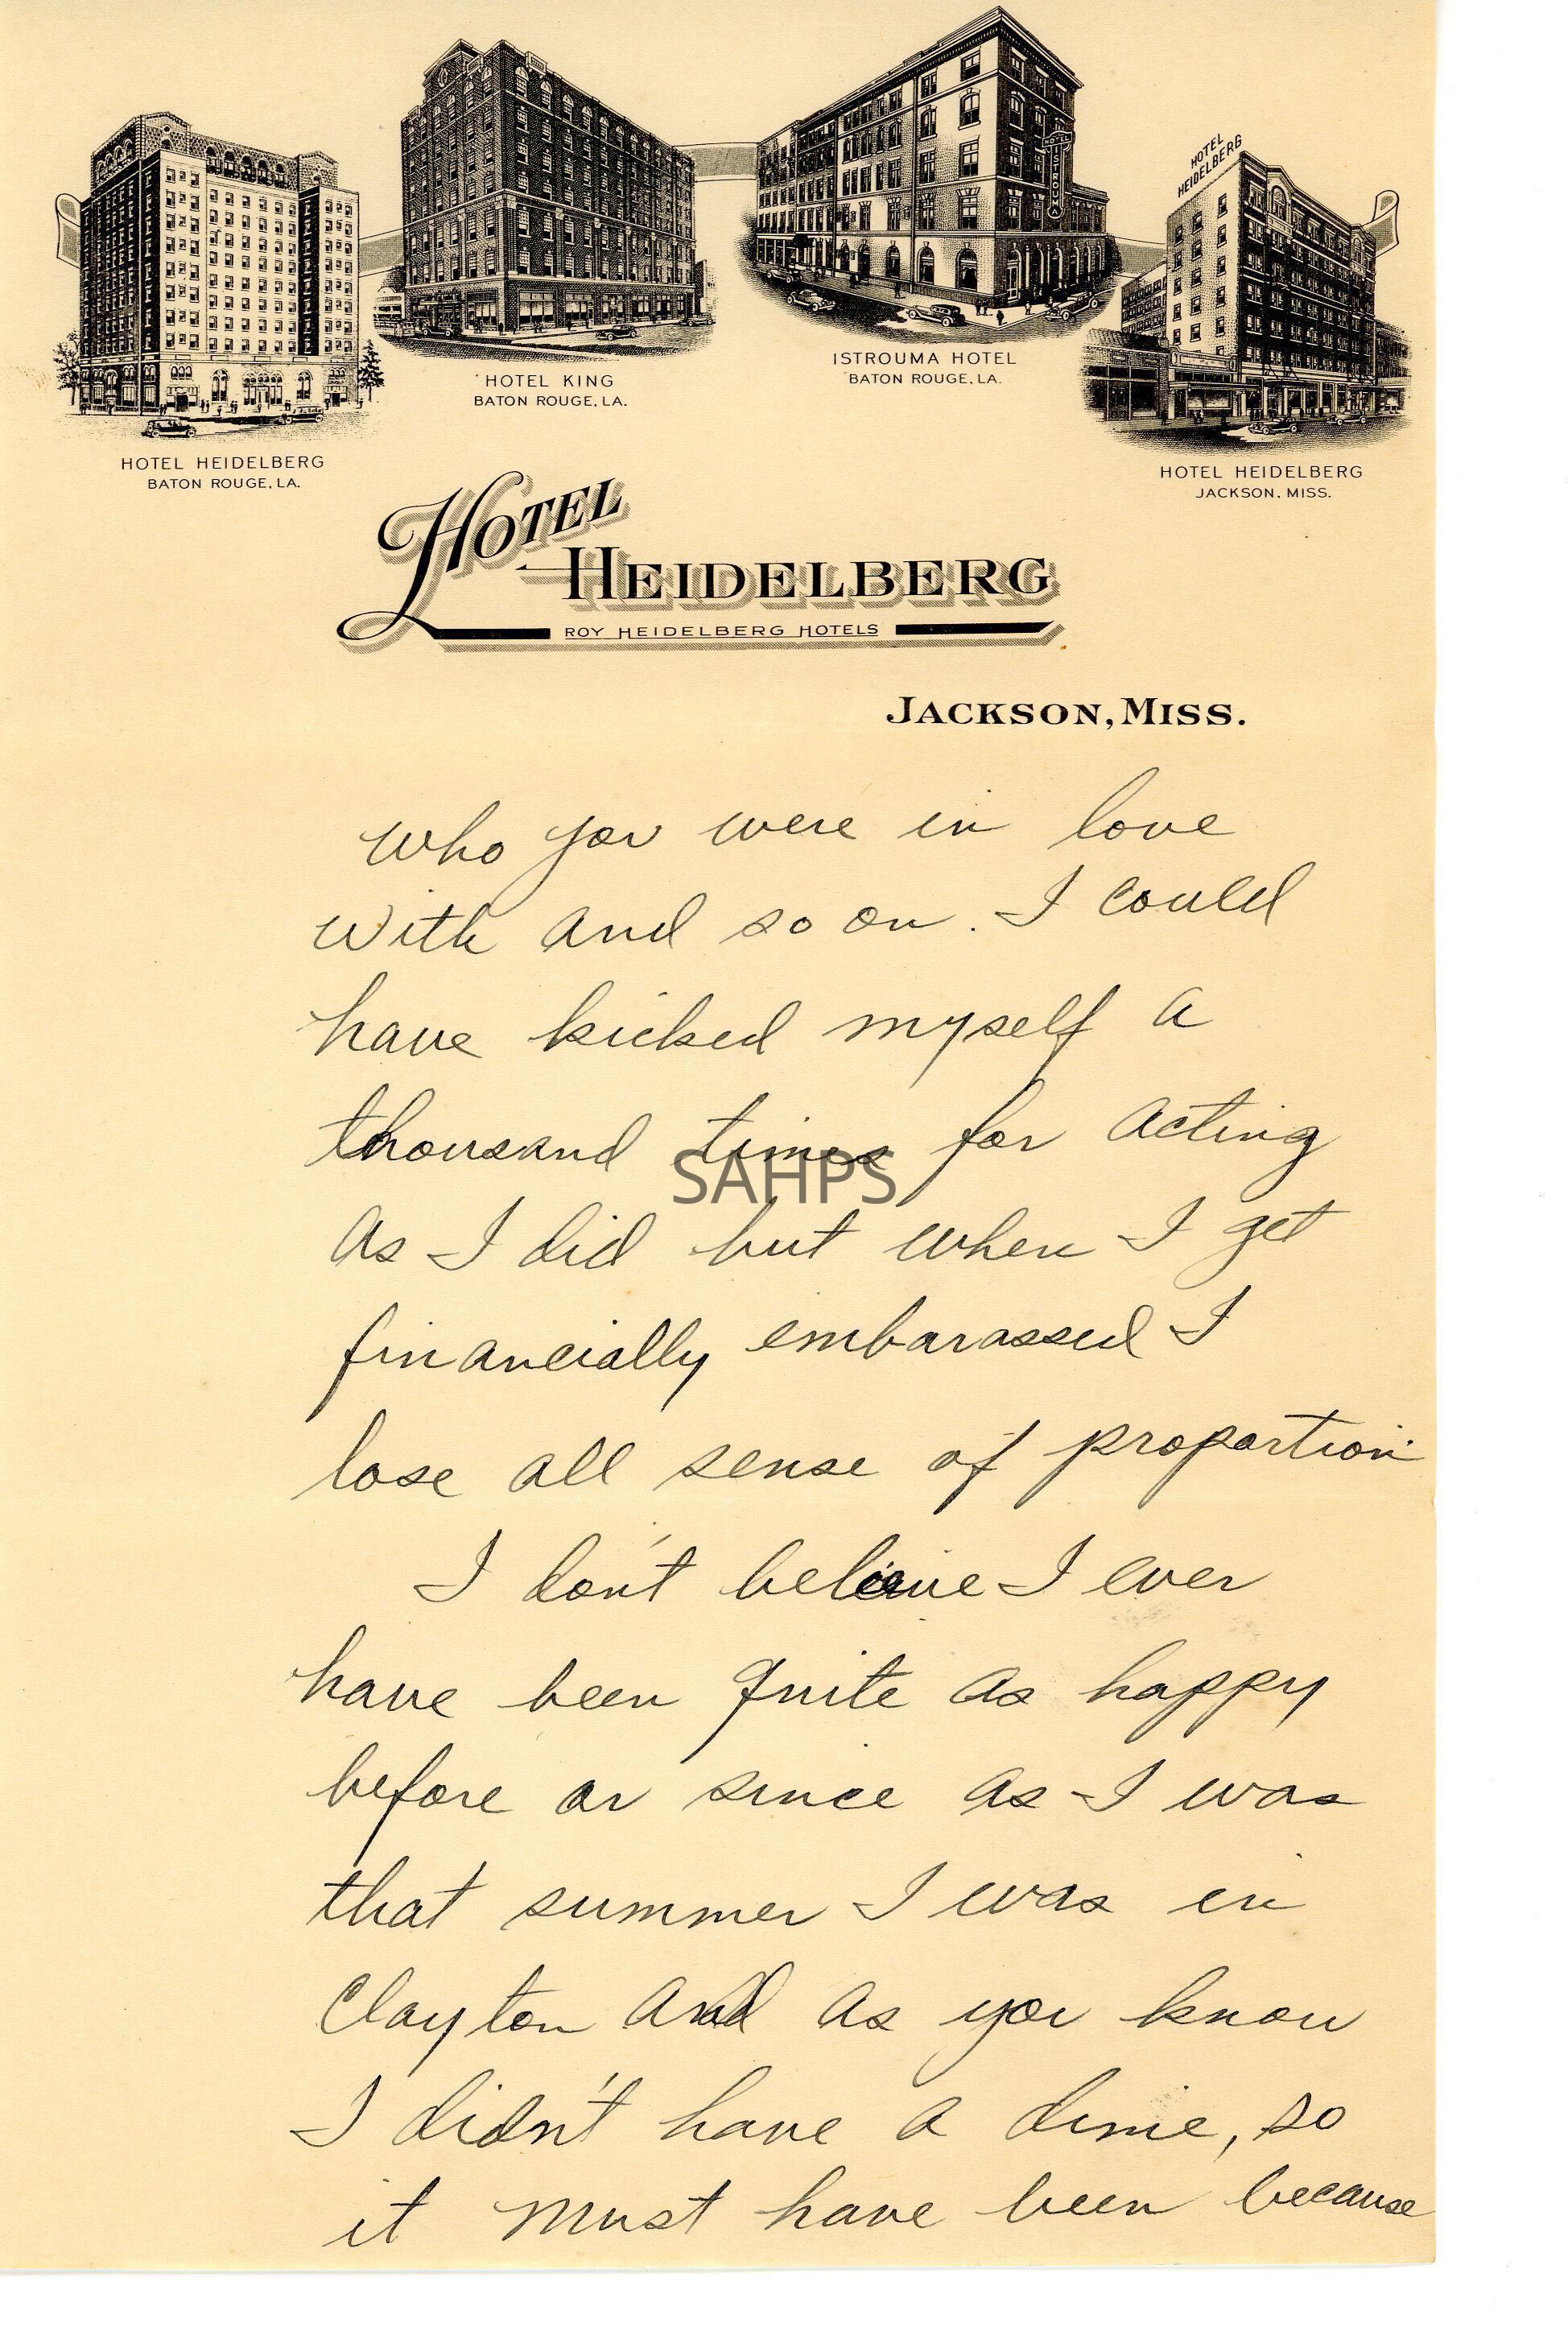 HOTEL HEIDELBERG
BATON ROUGE, LA.
HOTEL KING
BATON ROUGE, LA.
HOTEL ISTROUMA
ISTROUMA HOTEL
BATON ROUGE, LA.
HOTEL
HEIDELBERG
HOTEL HEIDELBERG
JACKSON, MISS.
HOTEL
HEIDELBERG
ROY HEIDELBERG HOTELS
JACKSON, MISS.
who you were in love
with and so on. I could
have kicked myself a
thousand times for acting
SAHPS
as I did but when I get
financially embarassed I
lose all sense of proportion
I don't believe I ever
have been quite as happy
before or since as I was
that summer I was in
Clayton and as you know
I didn't have a dime, so
it must have been because